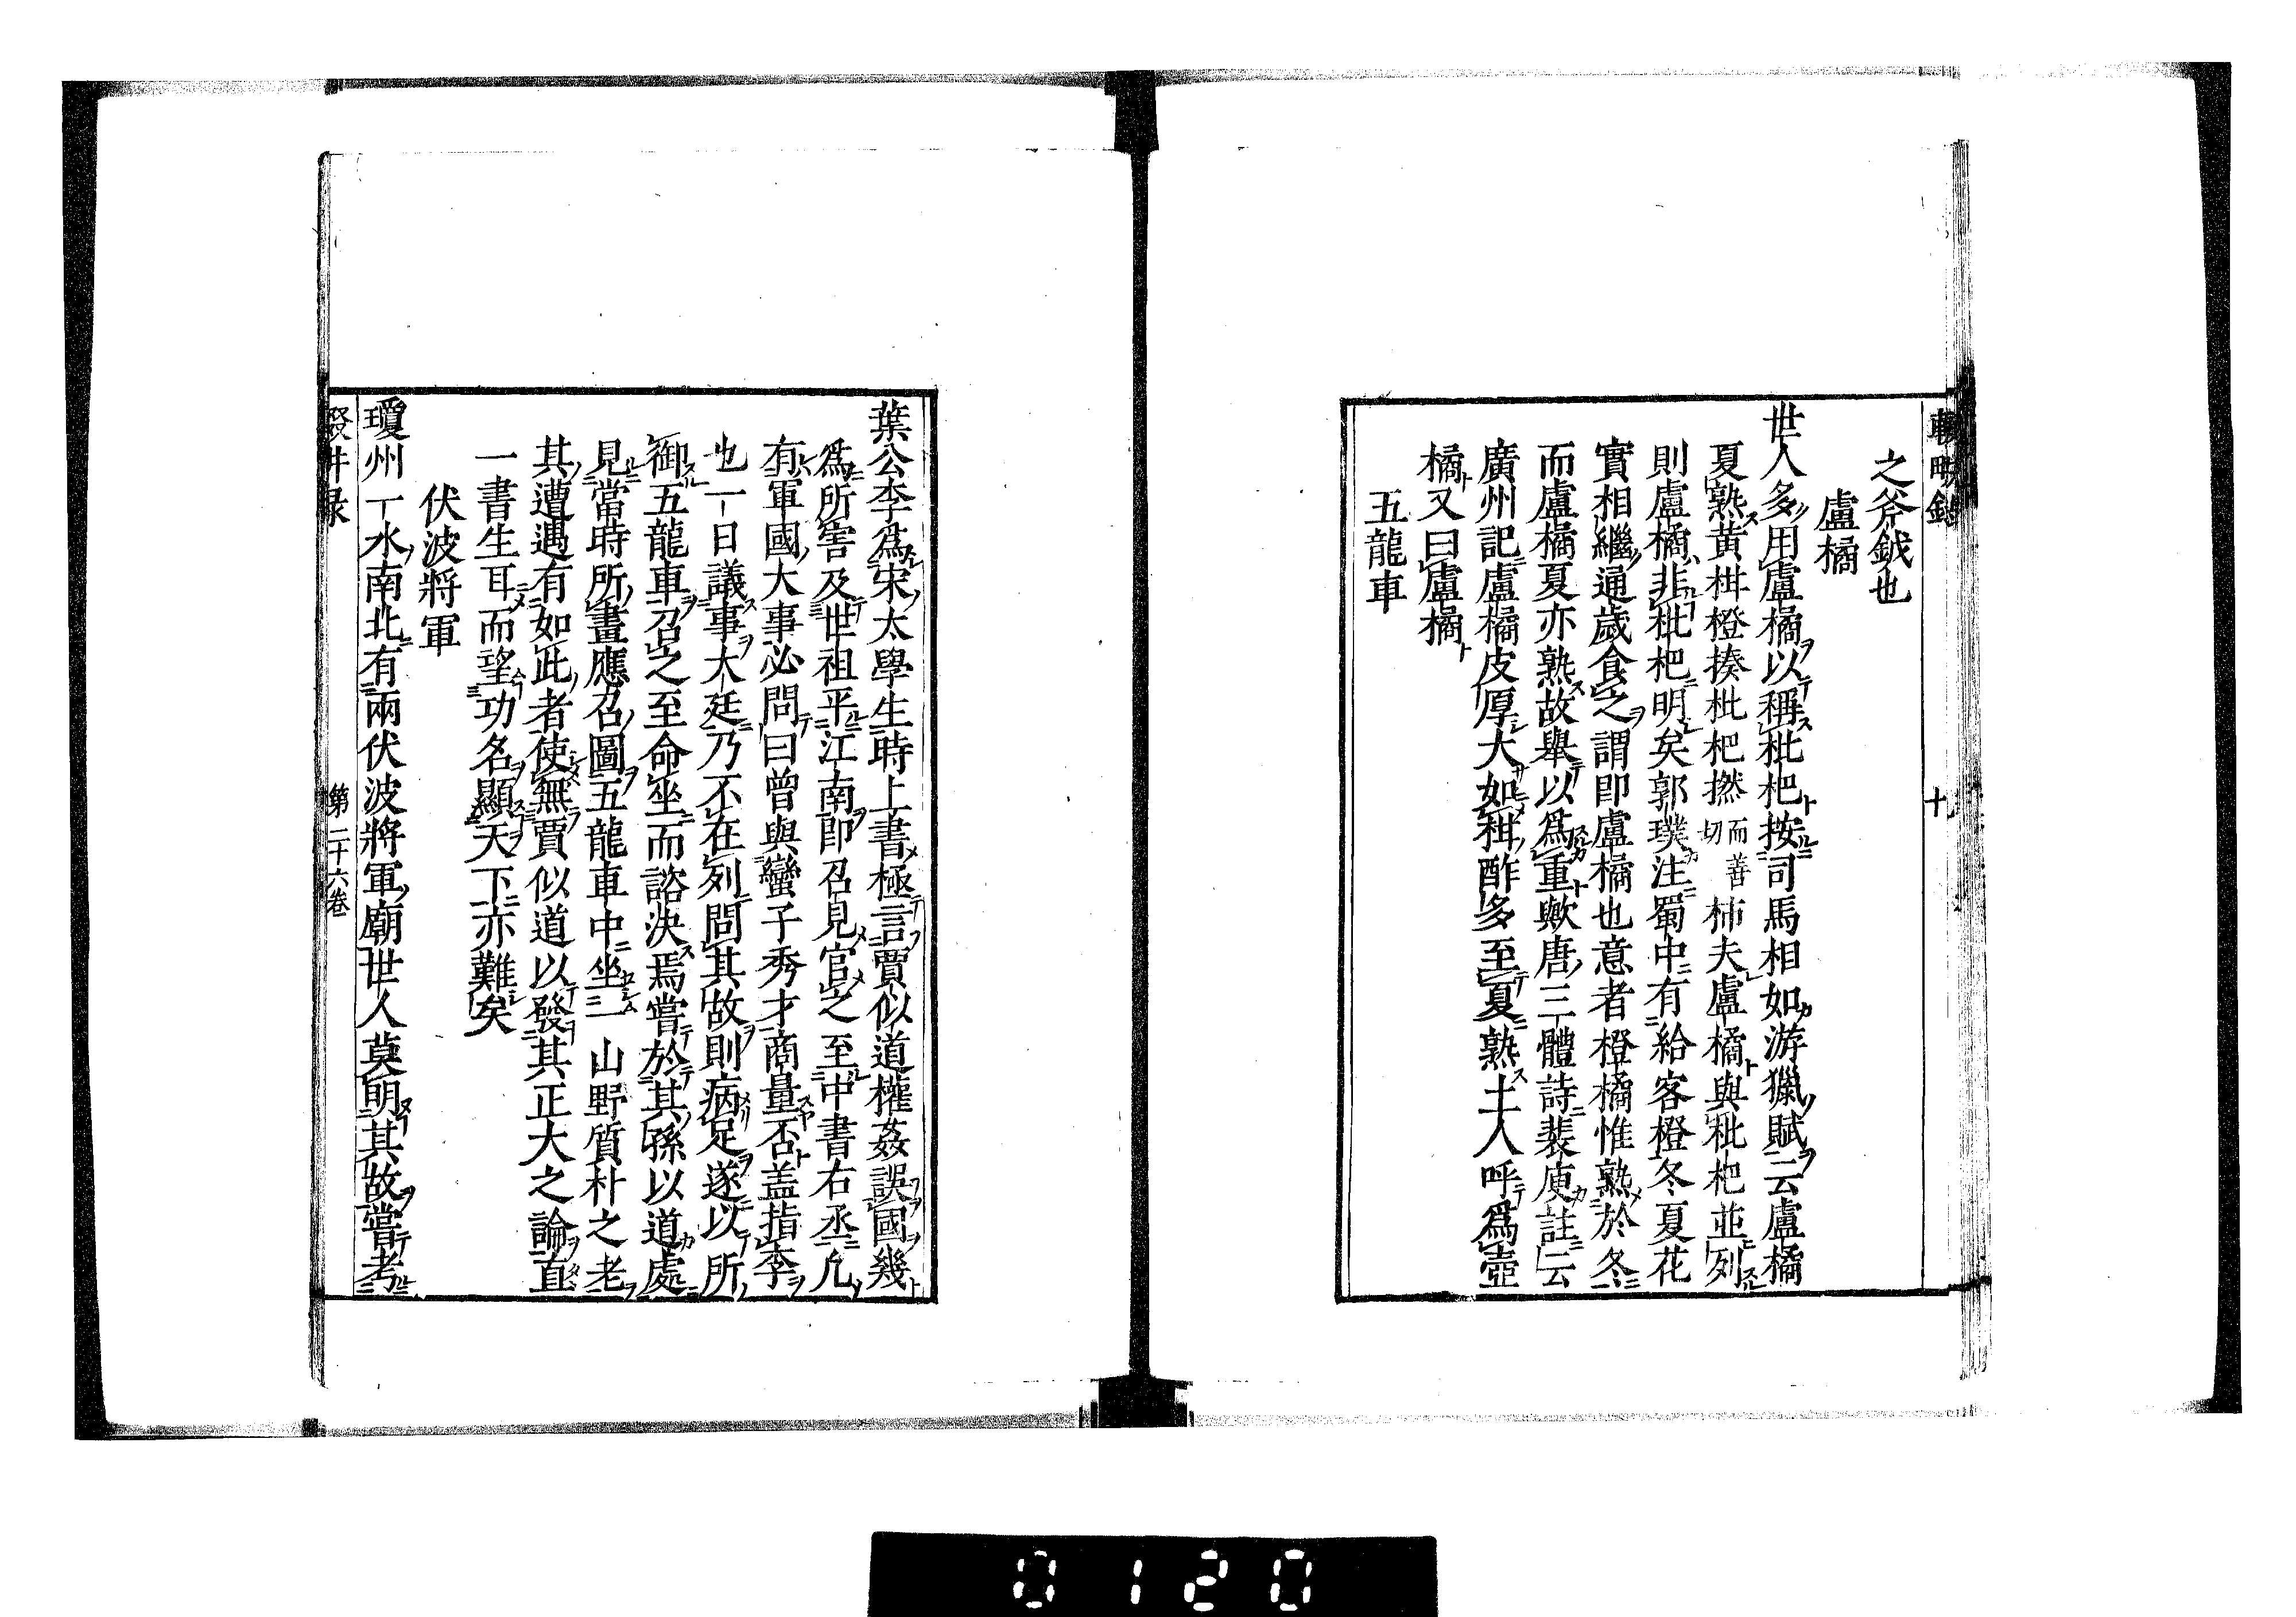 輟畊錄
十
之斧鉞也
盧橘
世人多用盧橘以稱枇杷按司馬相如游獵賦云盧橘
夏熟黃柑橙揍枇杷撚而善切柿夫盧橘與枇杷並列
則盧橘非枇杷明矣郭璞注蜀中有給客橙冬夏花
實相繼通歲食之謂即盧橘也意者橙橘惟熟於冬
而盧橘夏亦熟故舉以爲重歟唐三體詩裴庾註云
廣州記盧橘皮厚大如柑酢多至夏熟土人呼爲壺
橘又曰盧橘
五龍車
葉公李爲宋太學生時上書極言賈似道權姦誤國幾
爲所害及世祖平江南即召見官之至中書右丞凡
有軍國大事必問曰曾與蠻子秀才商量否盖指李
也一日議事大廷乃不在列問其故則病足遂以所
御五龍車召之至命坐而諮決焉嘗於其孫以道處
見當時所畫應召圖五龍車中坐一山野質朴之老
其遭遇有如此者使無賈似道以發其正大之論直
一書生耳而望功名顯天下亦難矣
伏波將軍
瓊州一水南北有兩伏波將軍廟世人莫明其故嘗考
第二十六卷